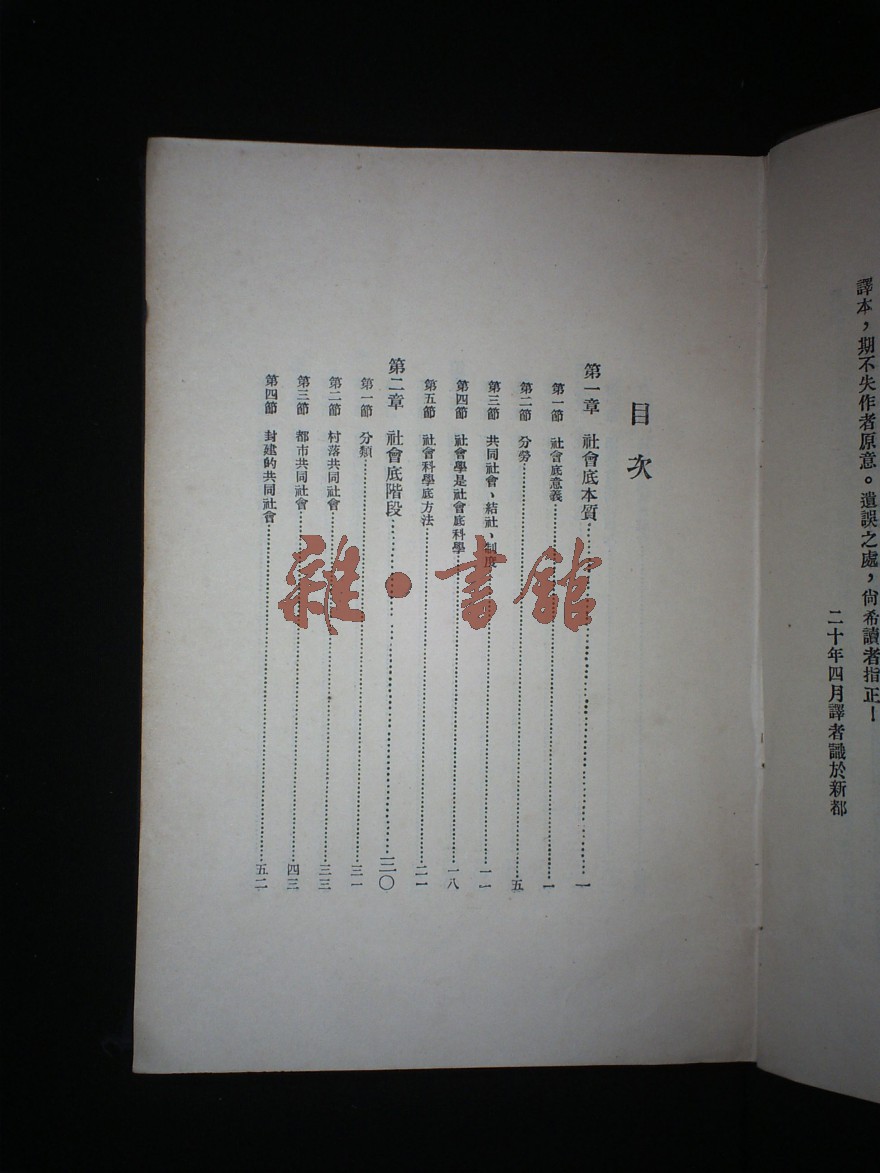 譯本，期不失作者原意。遺誤之處，尙希讀者指正！
二十年四月譯者識於新都
目次
第一章 社會底本質……一
第一節 社會底意義……一
第二節 分勞……五
第三節 共同社會、結社、制度……一一
第四節 社會學是社會底科學……一八
第五節 社會科學底方法……二一
第二章 社會底階段……三〇
第一節 分類……三一
第二節 村落共同社會……三三
第三節 都市共同社會……四三
第四節 封建的共同社會……五二
雜·書館